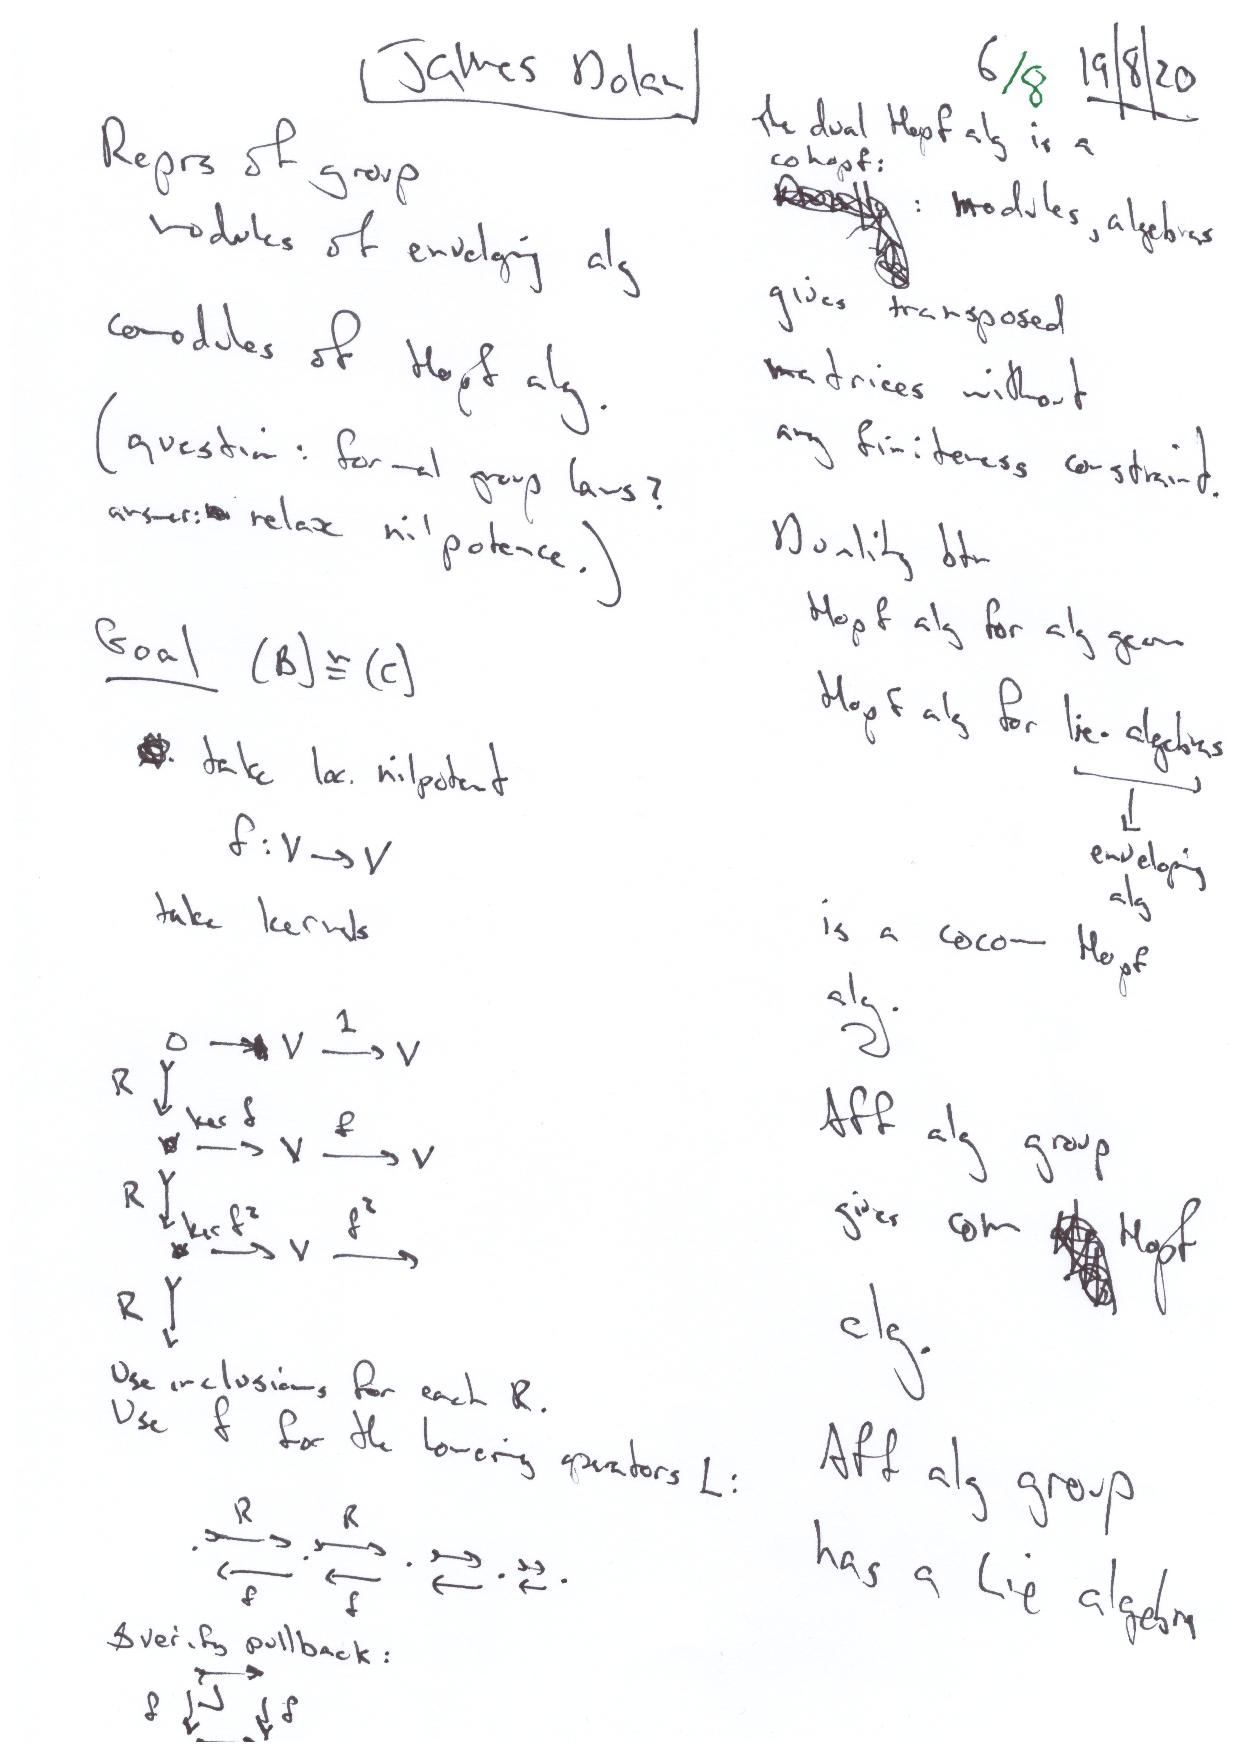 James Dolan
6/8 19/8/20
Reprs of group
modules of enveloping alg
comodules of Hopf alg.
(question: formal group laws?
answer: relax nilpotence.)
Goal (B) ≅ (C)
take loc. nilpotent
f: V → V
take kernels
0 → V 1→ V
R
ker f → V f→ V
R
ker f² → V f² →
R
Use inclusions for each R.
Use f for the lowering operators L:
R R
f f
verify pullback:
f f
the dual Hopf alg is a
cohopf:
: modules, algebras
gives transposed
matrices without
any finiteness constraint.
Duality btn
Hopf alg for alg geom
Hopf alg for lie algebras
↓
enveloping
alg
is a cocom Hopf
alg.
Aff alg group
gives com Hopf
alg.
Aff alg group
has a Lie algebra